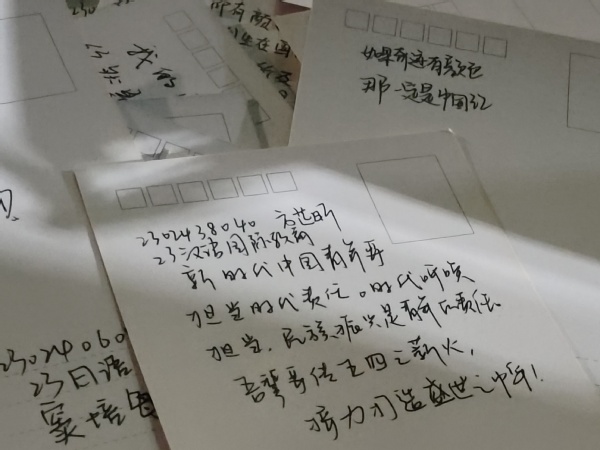 我的
如果奇迹有颜色
那一定是中国红
2302438040
23汉语国际教育
新时代中国青年要
担当时代责任。时代呼唤
担当,民族振兴是青年的责任。
吾辈要传五四之薪火,
接力创造盛世之中华!
23024060
23日语